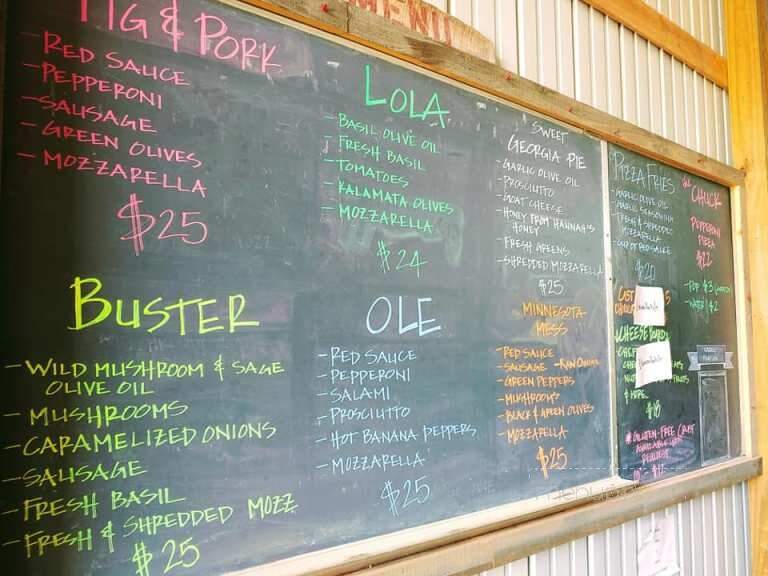 MENU
PIG & PORK
- RED SAUCE
- PEPPERONI
- SAUSAGE
- GREEN OLIVES
- MOZZARELLA
$25
BUSTER
- WILD MUSHROOM & SAGE
OLIVE OIL
- MUSHROOMS
- CARAMELIZED ONIONS
- SAUSAGE
- FRESH BASIL
- FRESH & SHREDDED MOZZ
$25
LOLA
- BASIL OLIVE OIL
- FRESH BASIL
- TOMATOES
- KALAMATA OLIVES
- MOZZARELLA
$24
OLE
- RED SAUCE
- PEPPERONI
- SALAMI
- PROSCIUTTO
- HOT BANANA PEPPERS
- MOZZARELLA
$25
SWEET
GEORGIA PIE
- GARLIC OLIVE OIL
- PROSCIUTTO
- GOAT CHEESE
- HONEY FROM HANNAH'S
HONEY
- FRESH GREENS
- SHREDDED MOZZARELLA
$25
MINNESOTA
MESS
- RED SAUCE
- SAUSAGE - RAW ONION
- GREEN PEPPERS
- MUSHROOMS
- BLACK & GREEN OLIVES
- MOZZARELLA
$25
PIZZA FRIES
- GARLIC OLIVE OIL
- GARLIC SEASONING
- FRESH & SHREDDED
MOZZARELLA
- CUP OF RED SAUCE
$20
CHUCK
PEPPERONI
PIZZA
$22
- POP $3
- WATER $2
CHEESE BOARD
& MORE
$18
* GLUTEN-FREE CRUST
AVAILABLE UPON
REQUEST